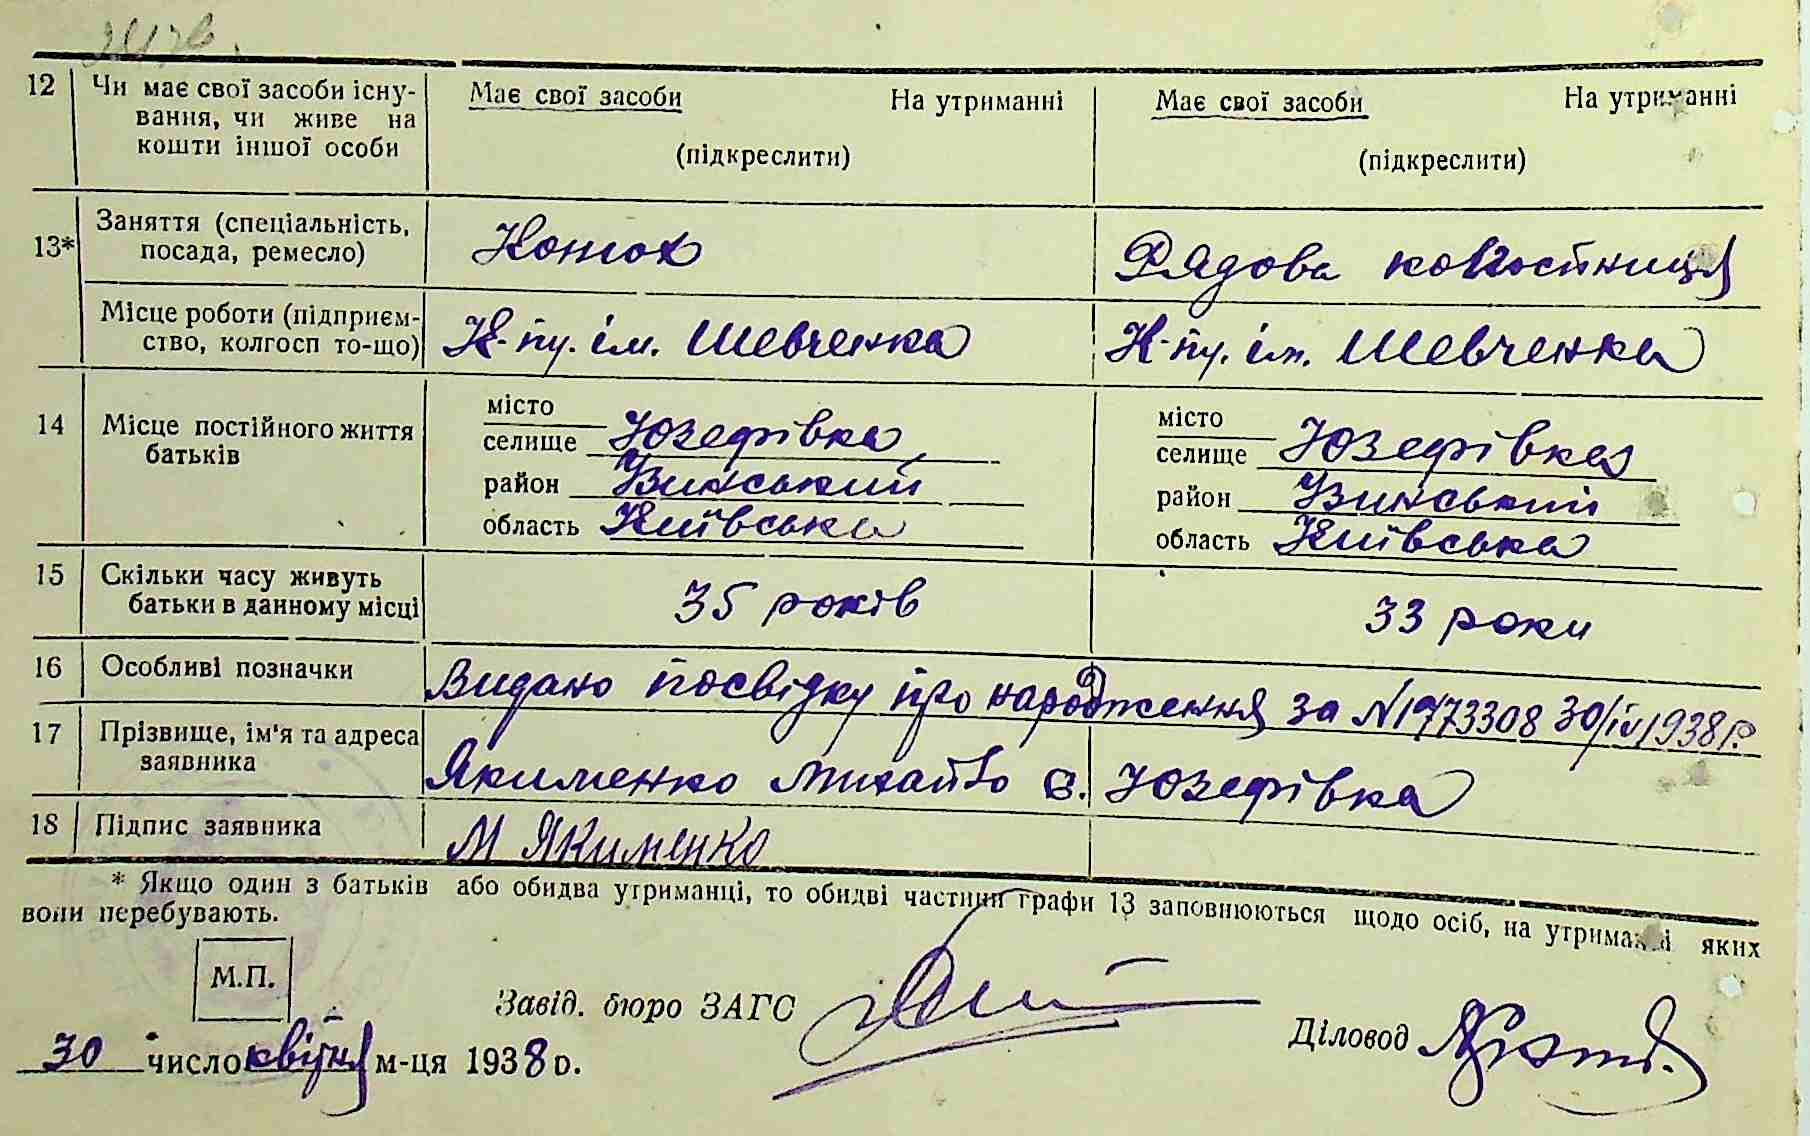 12 Чи має свої засоби існу- Має свої засоби На утриманні Має свої засоби На утриманні
вання, чи живе на
кошти іншої особи (підкреслити) (підкреслити)
13* Заняття (спеціальність, Конюх Рядова колгоспниця
посада, ремесло)
Місце роботи (підприєм- К-пу. ім. Шевченка К-пу. ім. Шевченка
ство, колгосп то-що)
14 Місце постійного життя місто місто
батьків селище Юзефівка селище Юзефівка
район Винський район Винський
область Київська область Київська
15 Скільки часу живуть 35 років 33 роки
батьки в данному місці
16 Особливі позначки Видано посвідку про народження за №1773308 30/IV 1938 р.
17 Прізвище, ім'я та адреса Якименко Михайло с. Юзефівка
заявника
18 Підпис заявника М Якименко
* Якщо один з батьків або обидва утриманці, то обидві частини графи 13 заповнюються щодо осіб, на утриманні яких
вони перебувають.
М.П.
Завід. бюро ЗАГС
Діловод
30 число квітня м-ця 1938 р.